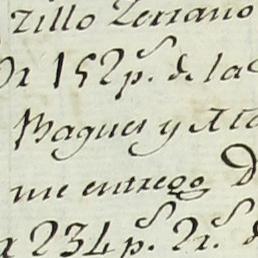 zillo Zerrano
Or 152 p.s de la
Magues y Ata
me entrego D
a 234 p.s 2 r.s d